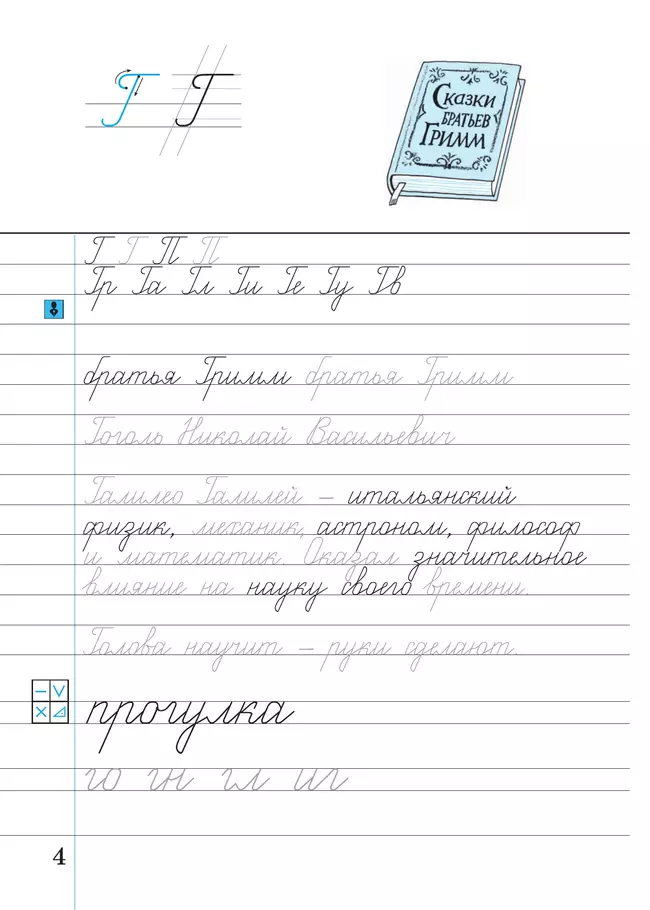 Г Г
Сказки
братьев
Гримм
Г Г П П
Гр Га Гл Ги Ге Гу Гв
братья Гримм братья Гримм
Гоголь Николай Васильевич
Галилео Галилей – итальянский
физик, механик, астроном, философ
и математик. Оказал значительное
влияние на науку своего времени.
Голова научит – руки сделают.
прогулка
го гн гл иг
4